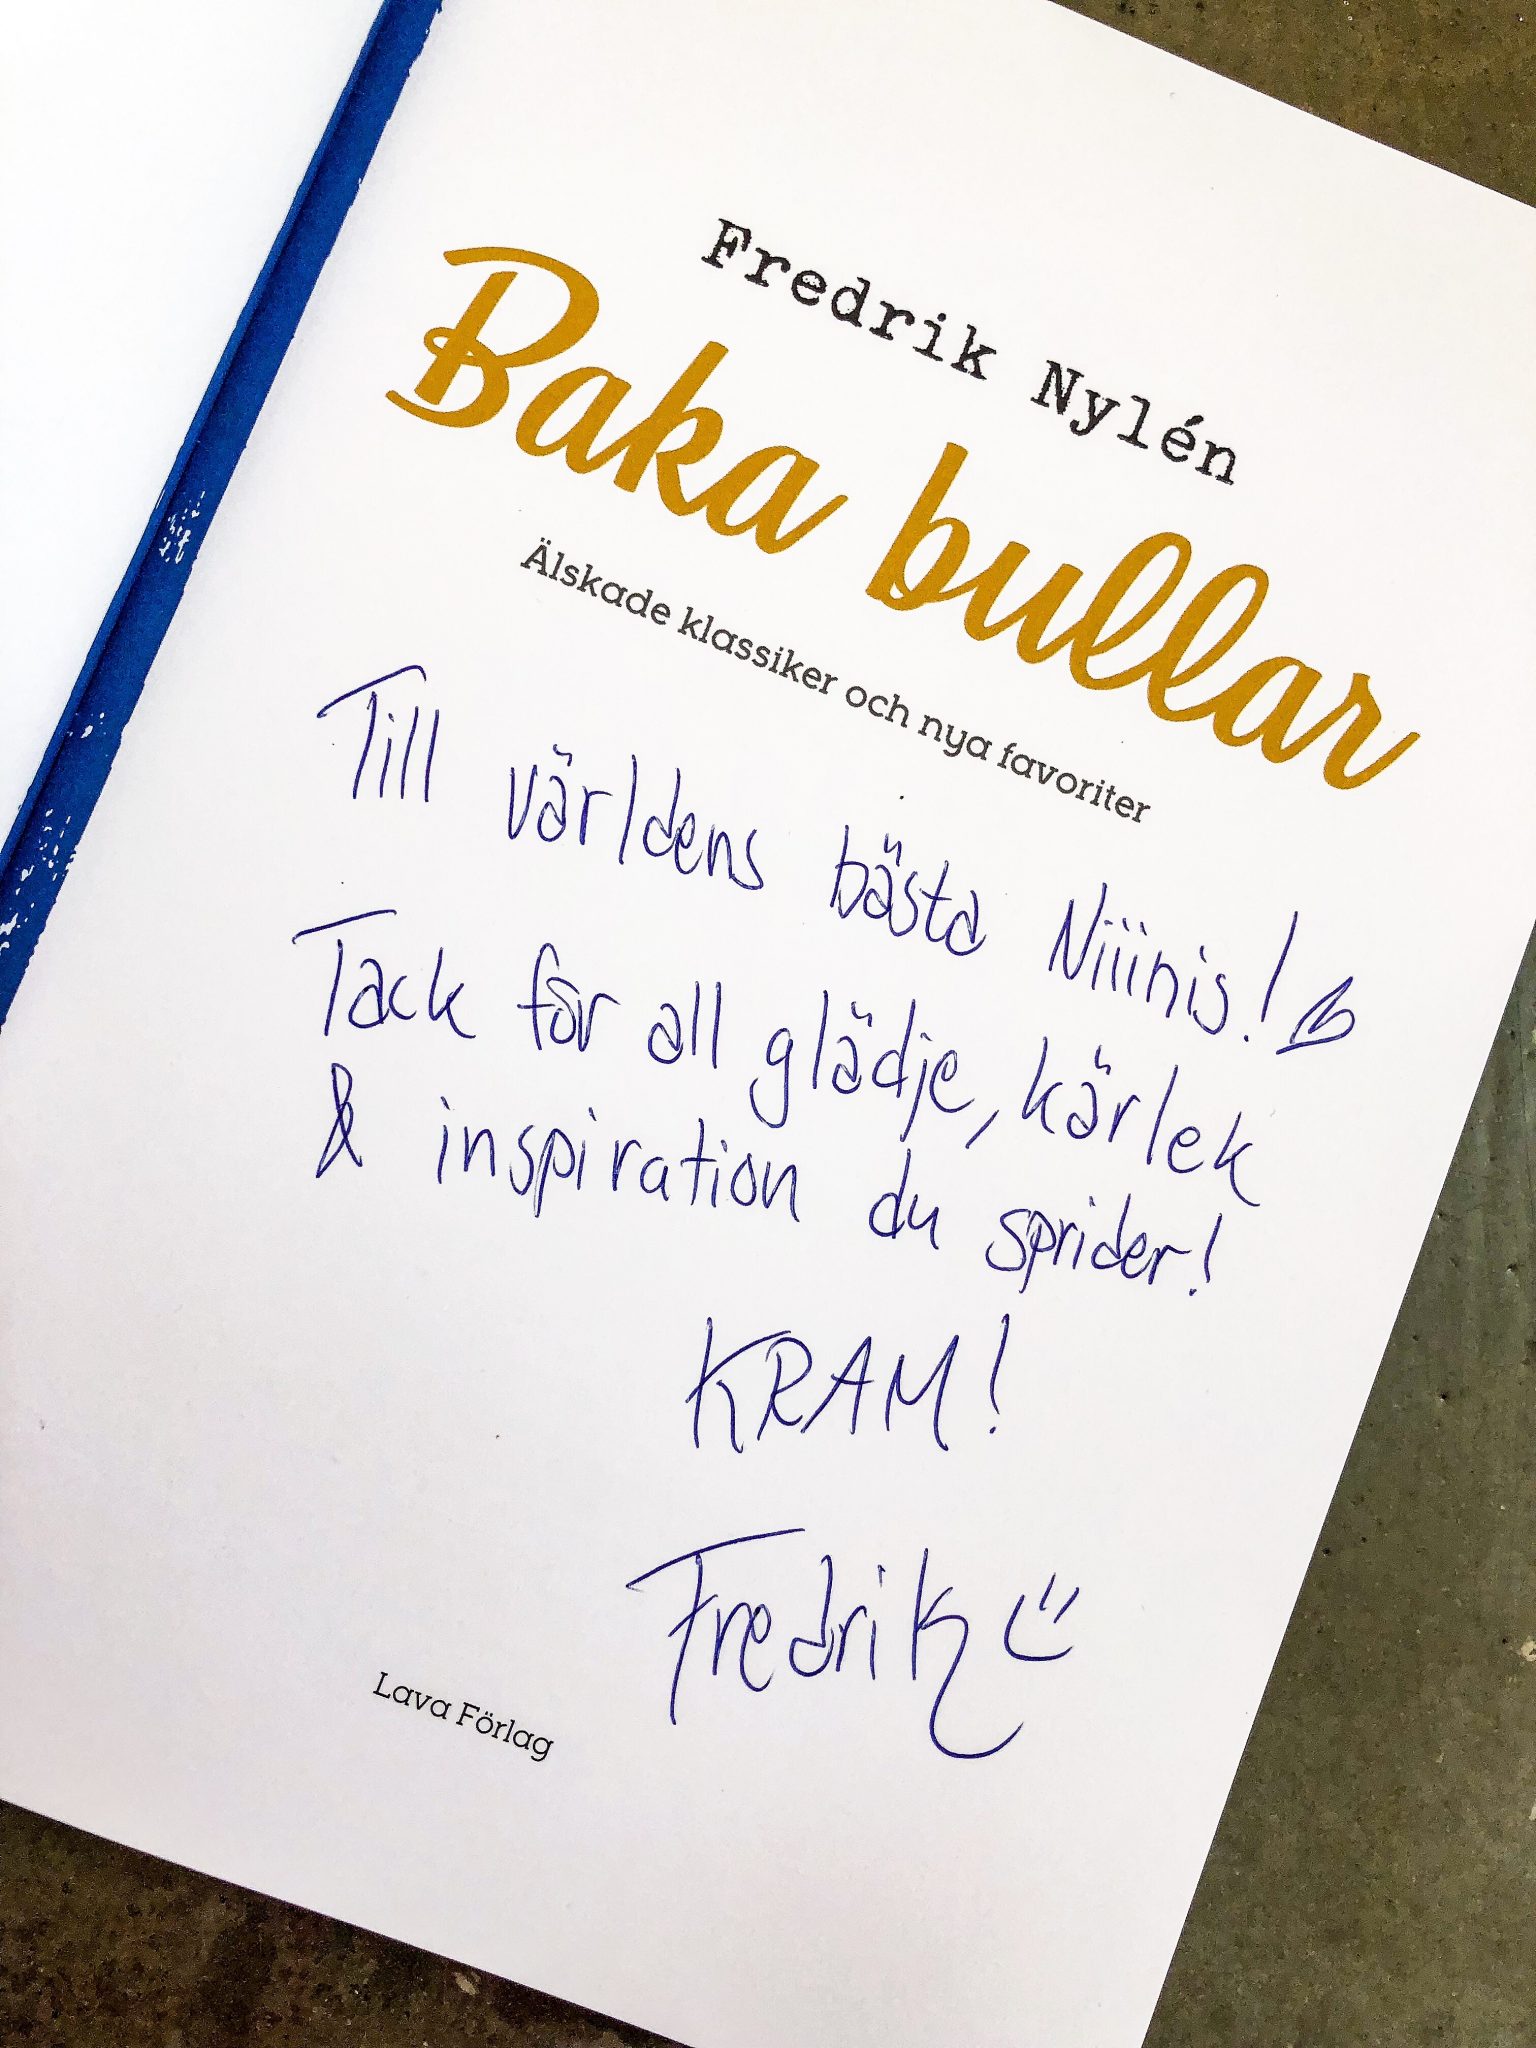 Fredrik Nylén
Baka bullar
Älskade klassiker och nya favoriter
Till världens bästa Niiinis!
Tack för all glädje, kärlek
& inspiration du sprider!
KRAM!
Fredrik
Lava Förlag